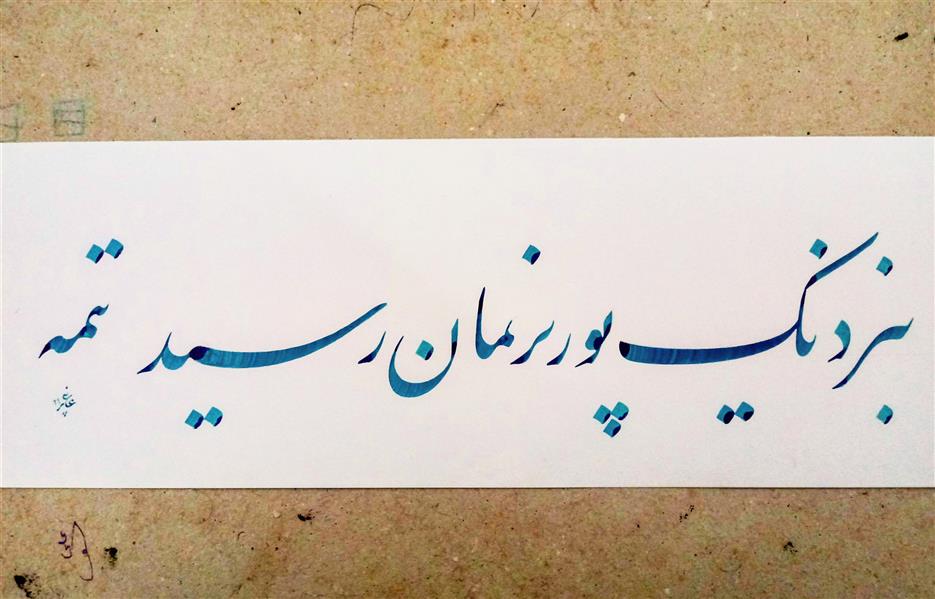 بنزدیک پور نریمان رسید تتمه